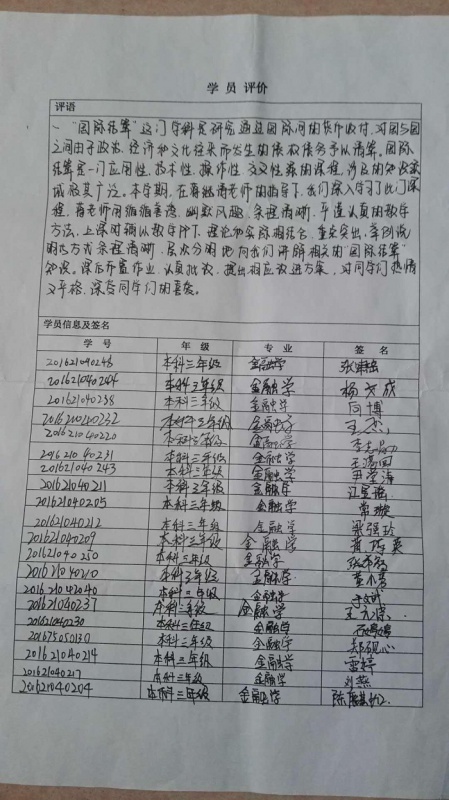 学 员 评价
评语
"国际结算"这门学科是研究通过国际间的货币收付，对国与国
之间由于政治、经济和文化往来而发生的债权债务予以清算。国际
结算是一门应用性、技术性、操作性、交叉性强的课程，涉及的知识领
域极其广泛。本学期，在老师的指导下，我们深入学习了此门课
程，老师用循循善诱、幽默风趣、条理清晰、平道认真的教学
方法，上课时确认教学下，理论和实际相结合、重点突出，举例说
明的方式条理清晰、层次分明地向我们讲解相关的"国际结算"
知识。课后布置作业，认真批改，提出相应改进方案，对同学们热情
又严格，深居同学们的喜爱。
学员信息及签名
学 号 年 级 专 业 签 名
201621040248 本科三年级 金融学
201621040244 本科三年级 金融学 杨
201621040238 本科三年级 金融学 向博
201621040232 本科三年级 金融学 王杰
201621040220 本科三年级 金融学 李
201621040231 本科三年级 金融学 王
201621040243 本科三年级 金融学 尹学海
201621040211 本科三年级 金融学 江星谣
201621040205 本科三年级 金融学 常璇
201621040212 本科三年级 金融学 梁强玲
201621040209 本科三年级 金融学
201621040250 本科三年级 金融学 张
201621040210 本科三年级 金融学
201621042040 本科三年级 金融学
201621040237 本科三年级 金融学 王
201621040230 本科三年级 金融学
201675050130 本科三年级 金融学 郑砚心
201621040214 本科三年级 金融学 雷婷
201621040217 本科三年级 金融学 刘燕
201621040204 本科三年级 金融学 陈